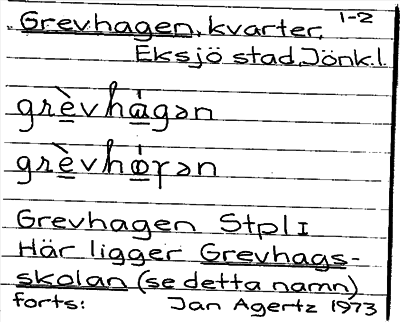 1-2
Grevhagen, kvarter,
Eksjö stad, Jönk.l.
grèvhágən
grèvhóɤən
Grevhagen Stpl I
Här ligger Grevhags-
skolan (se detta namn)
forts: Jan Agertz 1973